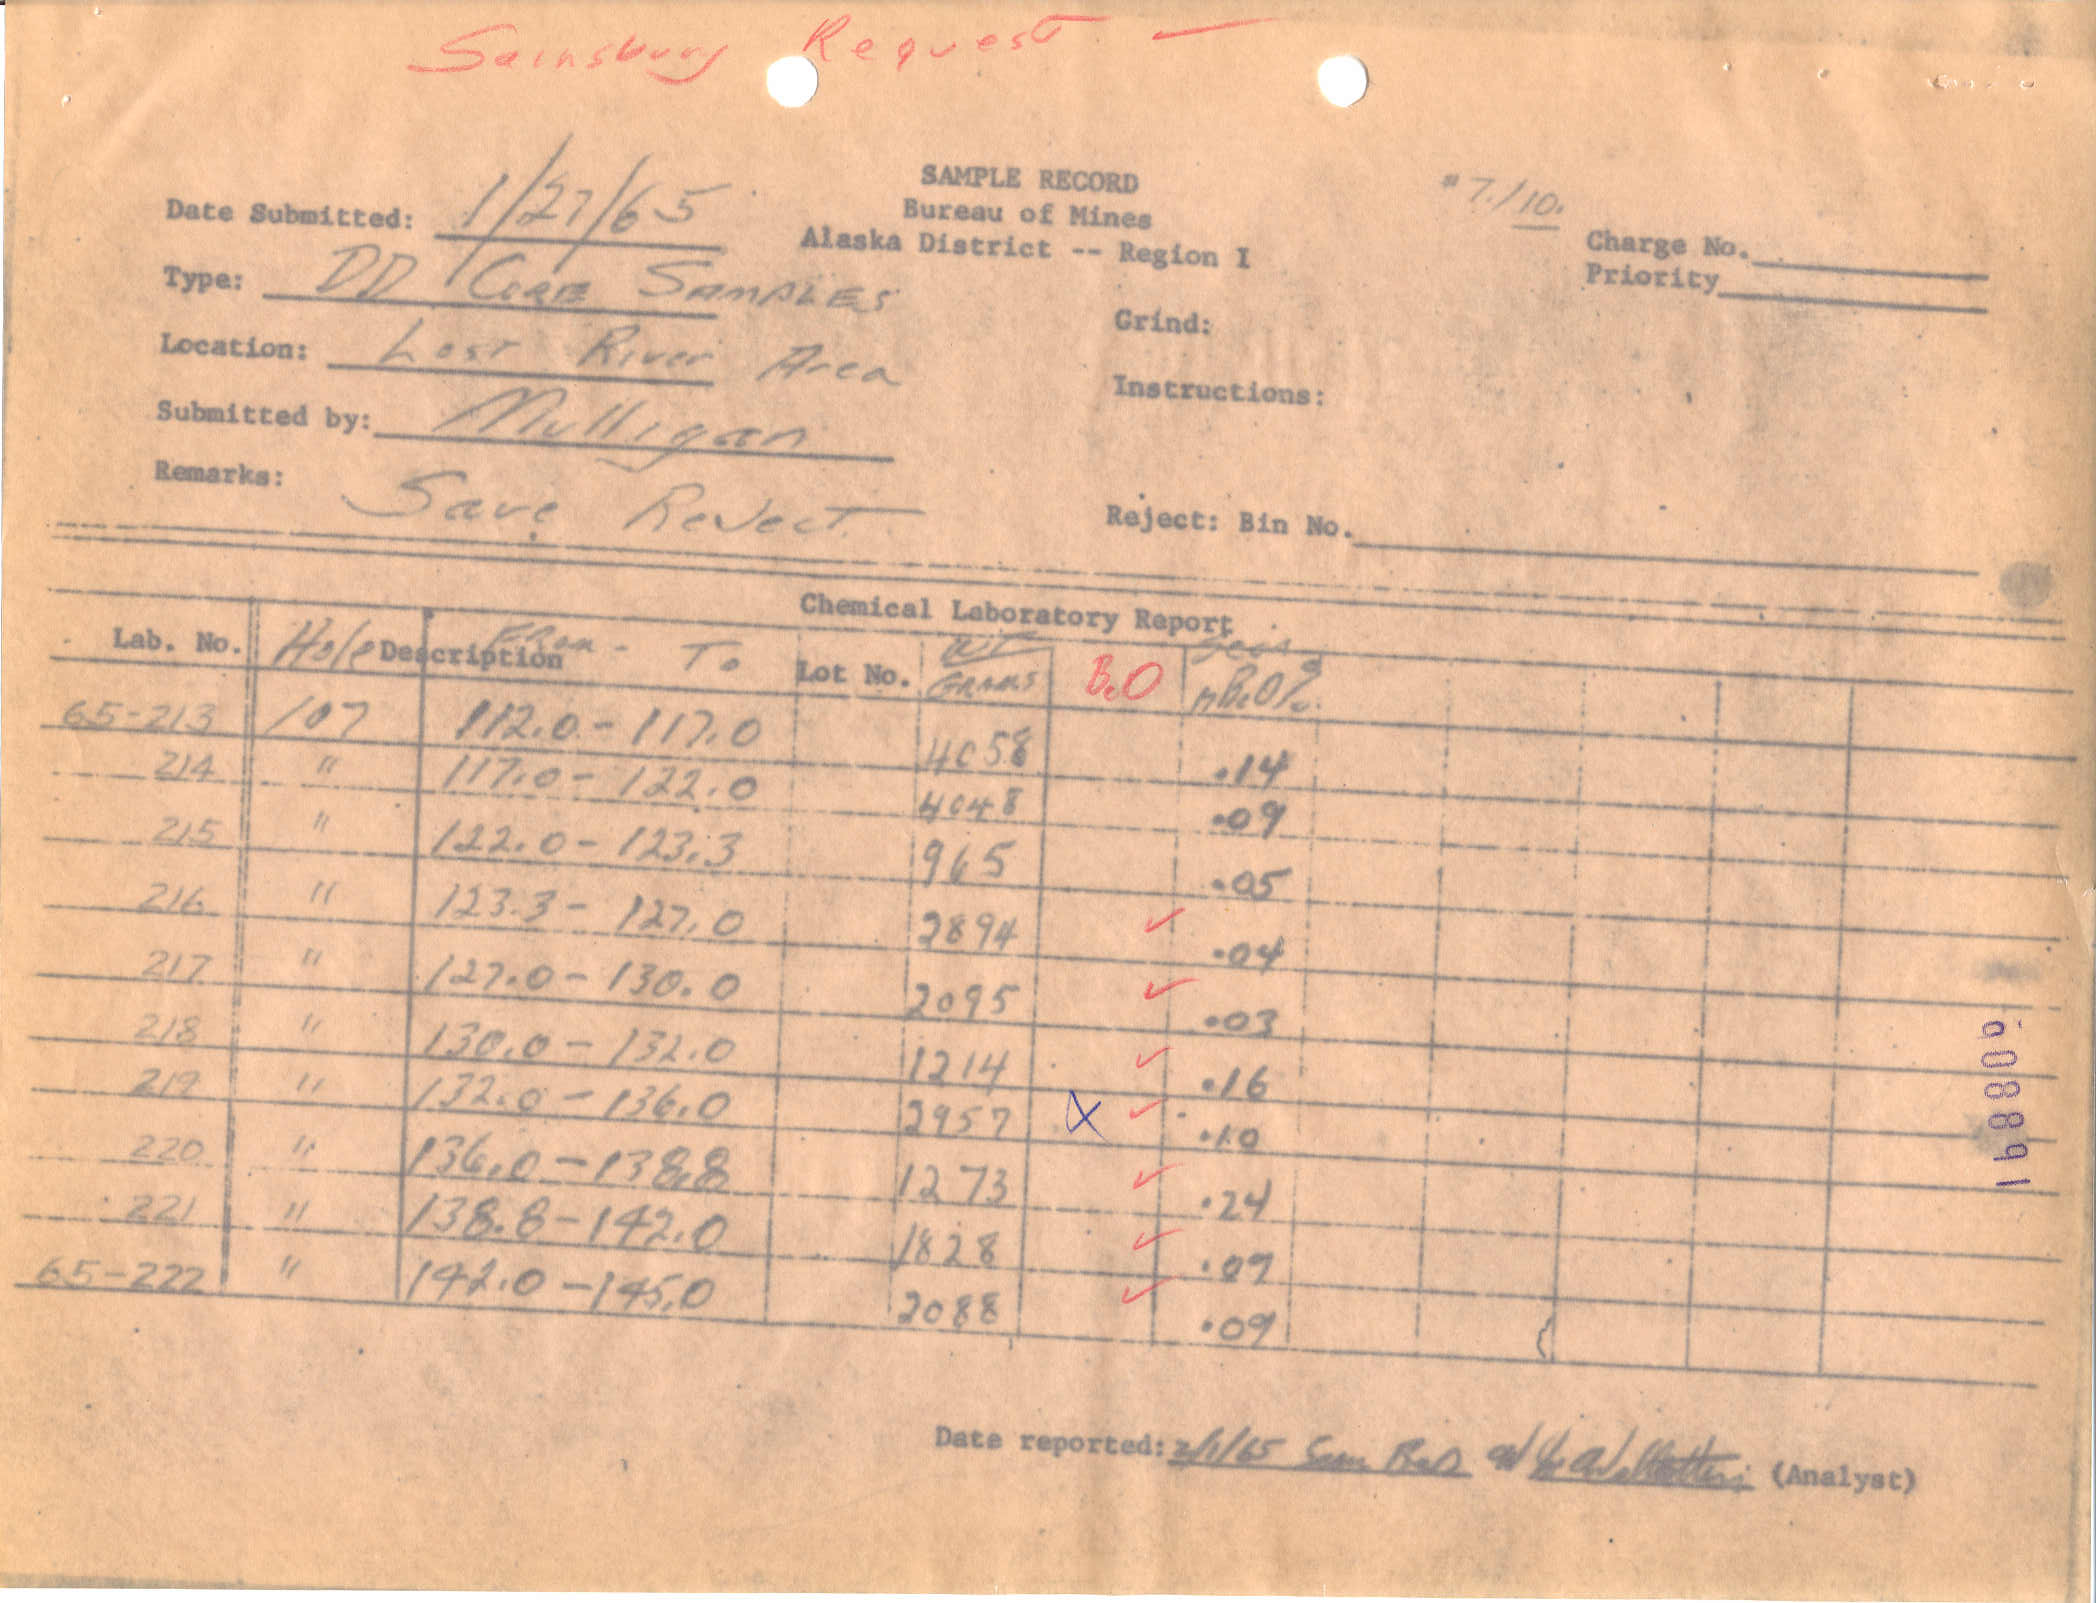 Sainsbury Request —
SAMPLE RECORD
Bureau of Mines
Alaska District -- Region I
# 7./10.
Date Submitted: 1/27/65
Charge No.
Priority
Type: DD Core SAMPLES
Grind:
Location: Lost River Area
Instructions:
Submitted by: Mulligan
Remarks: Save Reject
Reject: Bin No.
Chemical Laboratory Report
Lab. No. Hole Description From - To Lot No. WT GRAMS BeO BeO%
65-213 107 112.0 - 117.0 4058 .14
214 " 117.0 - 122.0 4048 .09
215 " 122.0 - 123.3 965 .05
216 " 123.3 - 127.0 2894 ✓ .04
217 " 127.0 - 130.0 2095 ✓ .03
218 " 130.0 - 132.0 1214 ✓ .16
219 " 132.0 - 136.0 2957 X ✓ .10
220 " 136.0 - 138.8 1273 ✓ .24
221 " 138.8 - 142.0 1828 ✓ .09
65-222 " 142.0 - 145.0 2088 ✓ .09
Date reported: 2/1/65 (Analyst)